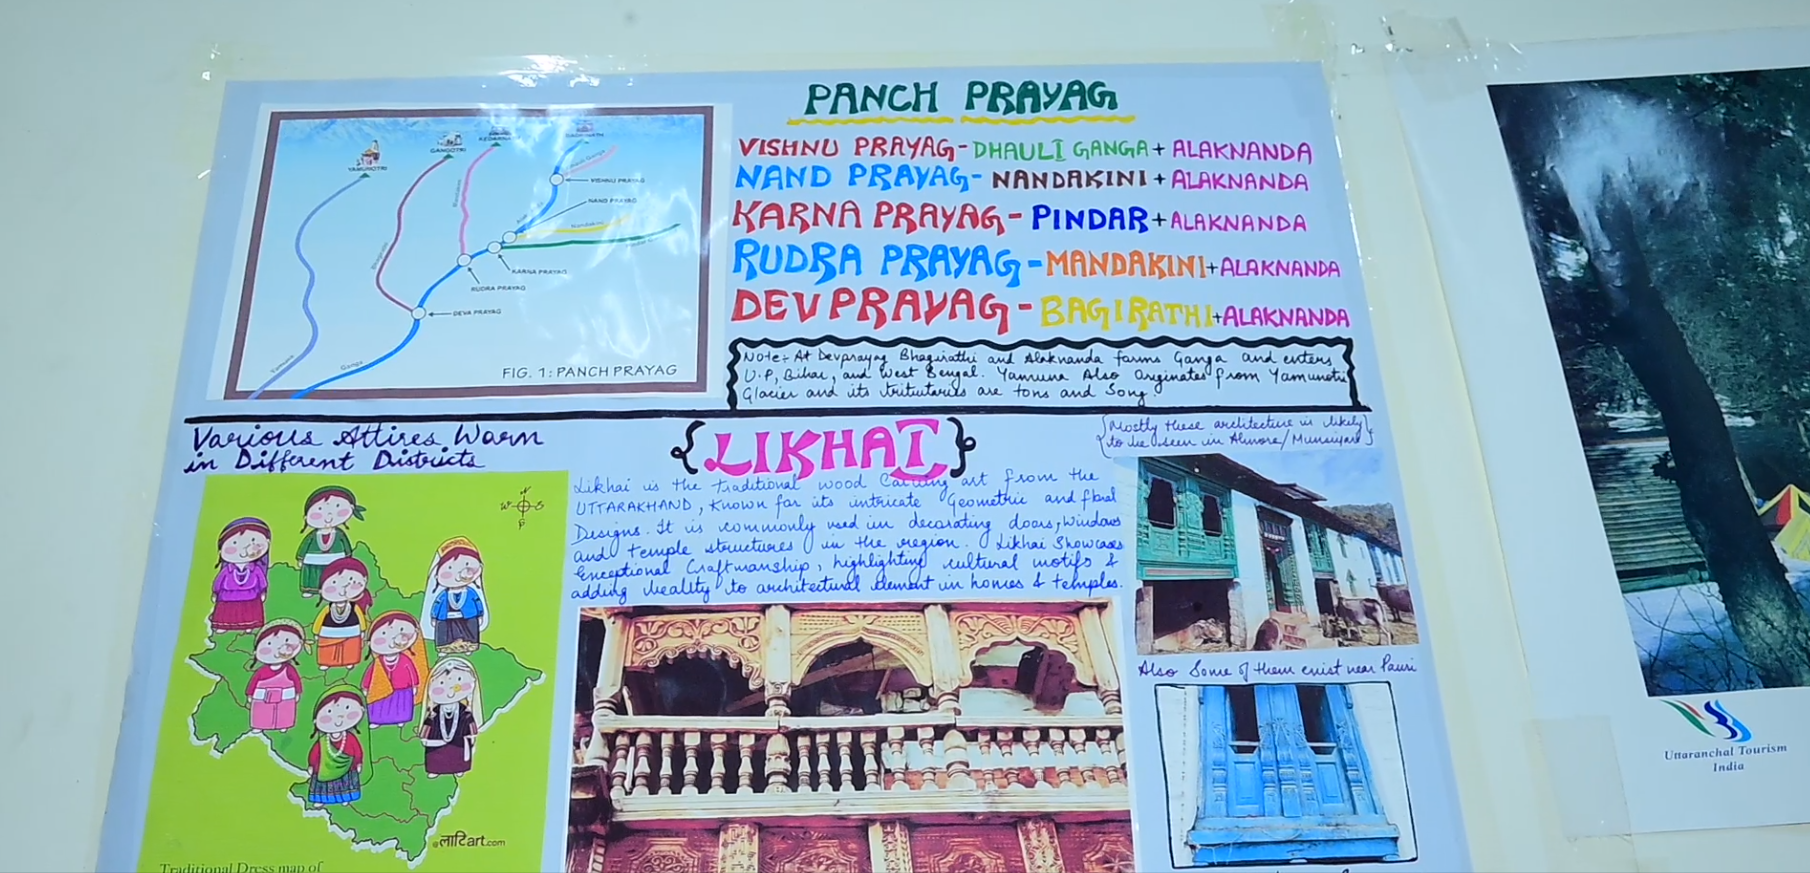 PANCH PRAYAG
VISHNU PRAYAG - DHAULI GANGA + ALAKNANDA
NAND PRAYAG - NANDAKINI + ALAKNANDA
KARNA PRAYAG - PINDAR + ALAKNANDA
RUDRA PRAYAG - MANDAKINI + ALAKNANDA
DEV PRAYAG - BAGIRATHI + ALAKNANDA
Note:- At Devprayag Bhagirathi and Alaknanda farms Ganga and enters
U.P, Bihar, and West Bengal. Yamuna Also Orginates from Yamunotri
Glacier and its tritutaries are tons and Song.
YAMUNOTRI
GANGOTRI
VISHNU PRAYAG
NAND PRAYAG
Nandakini
KARNA PRAYAG
RUDRA PRAYAG
DEVA PRAYAG
Yamuna
Ganga
FIG. 1: PANCH PRAYAG
Various Attires Warn
in Different Districts
N
W S
@लाटिart.com
Traditional Dress map of
{LIKHAI}
Likhai is the traditional wood Carving art from the
UTTARAKHAND, Known for its intricate Geometric and floral
Designs. It is commonly used in decorating doors, Windows
and temple structures in the region. Likhai Showcases
Exceptional Craftmanship, highlighting cultural motifs &
adding to architectural element in homes & temples.
{Mostly these architecture is likely
to be seen in Almora/Munsiyari}
Also Some of them exist near Pauri
Uttaranchal Tourism
India